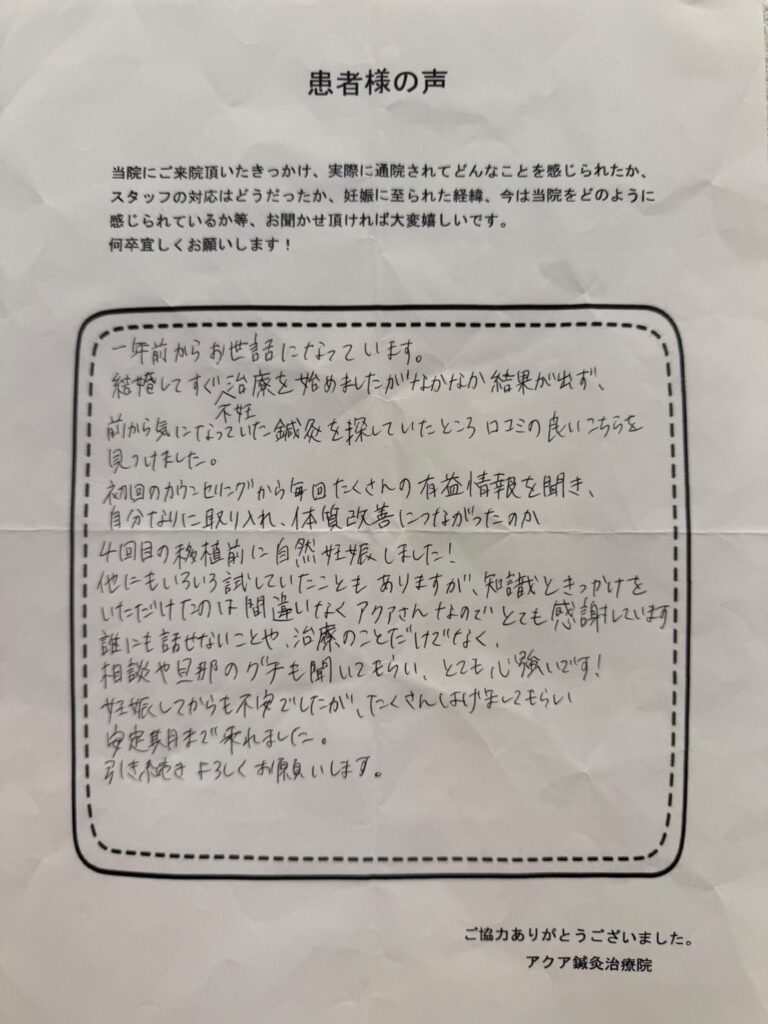 患者様の声
当院にご来院頂いたきっかけ、実際に通院されてどんなことを感じられたか、
スタッフの対応はどうだったか、妊娠に至られた経緯、今は当院をどのように
感じられているか等、お聞かせ頂ければ大変嬉しいです。
何卒宜しくお願いします！
一年前からお世話になっています。
結婚してすぐ不妊治療を始めましたがなかなか結果が出ず、
前から気になっていた鍼灸を探していたところ口コミの良いこちらを
見つけました。
初回のカウンセリングから毎回たくさんの有益情報を聞き、
自分なりに取り入れ、体質改善につながったのか
4回目の移植前に自然妊娠しました！
他にもいろいろ試していたこともありますが、知識ときっかけを
いただけたのは間違いなくアクアさんなのでとても感謝しています
誰にも話せないことや、治療のことだけでなく、
相談や旦那のグチも聞いてもらい、とても心強いです！
妊娠してからも不安でしたが、たくさんはげましてもらい
安定期まで来れました。
引き続きよろしくお願いします。
ご協力ありがとうございました。
アクア鍼灸治療院